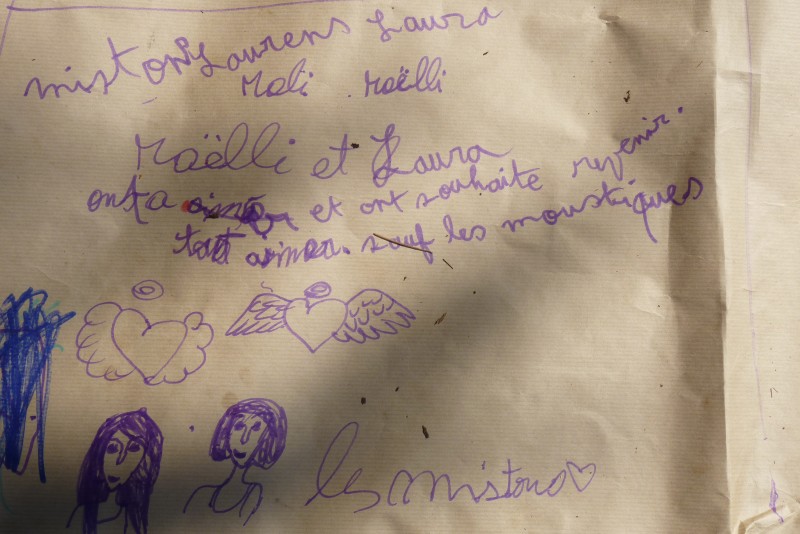 miston Laurens Laura
Mali Maëlli
Maëlli et Laura
ont a et ont souhaite revenir.
tout aimer. sauf les moustiques
les mistono